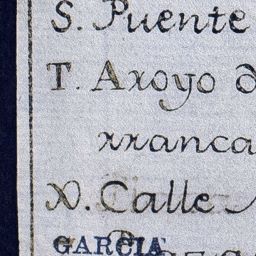 S. Puente
T. Aroyo d
rranca
X. Calle
GARCIA